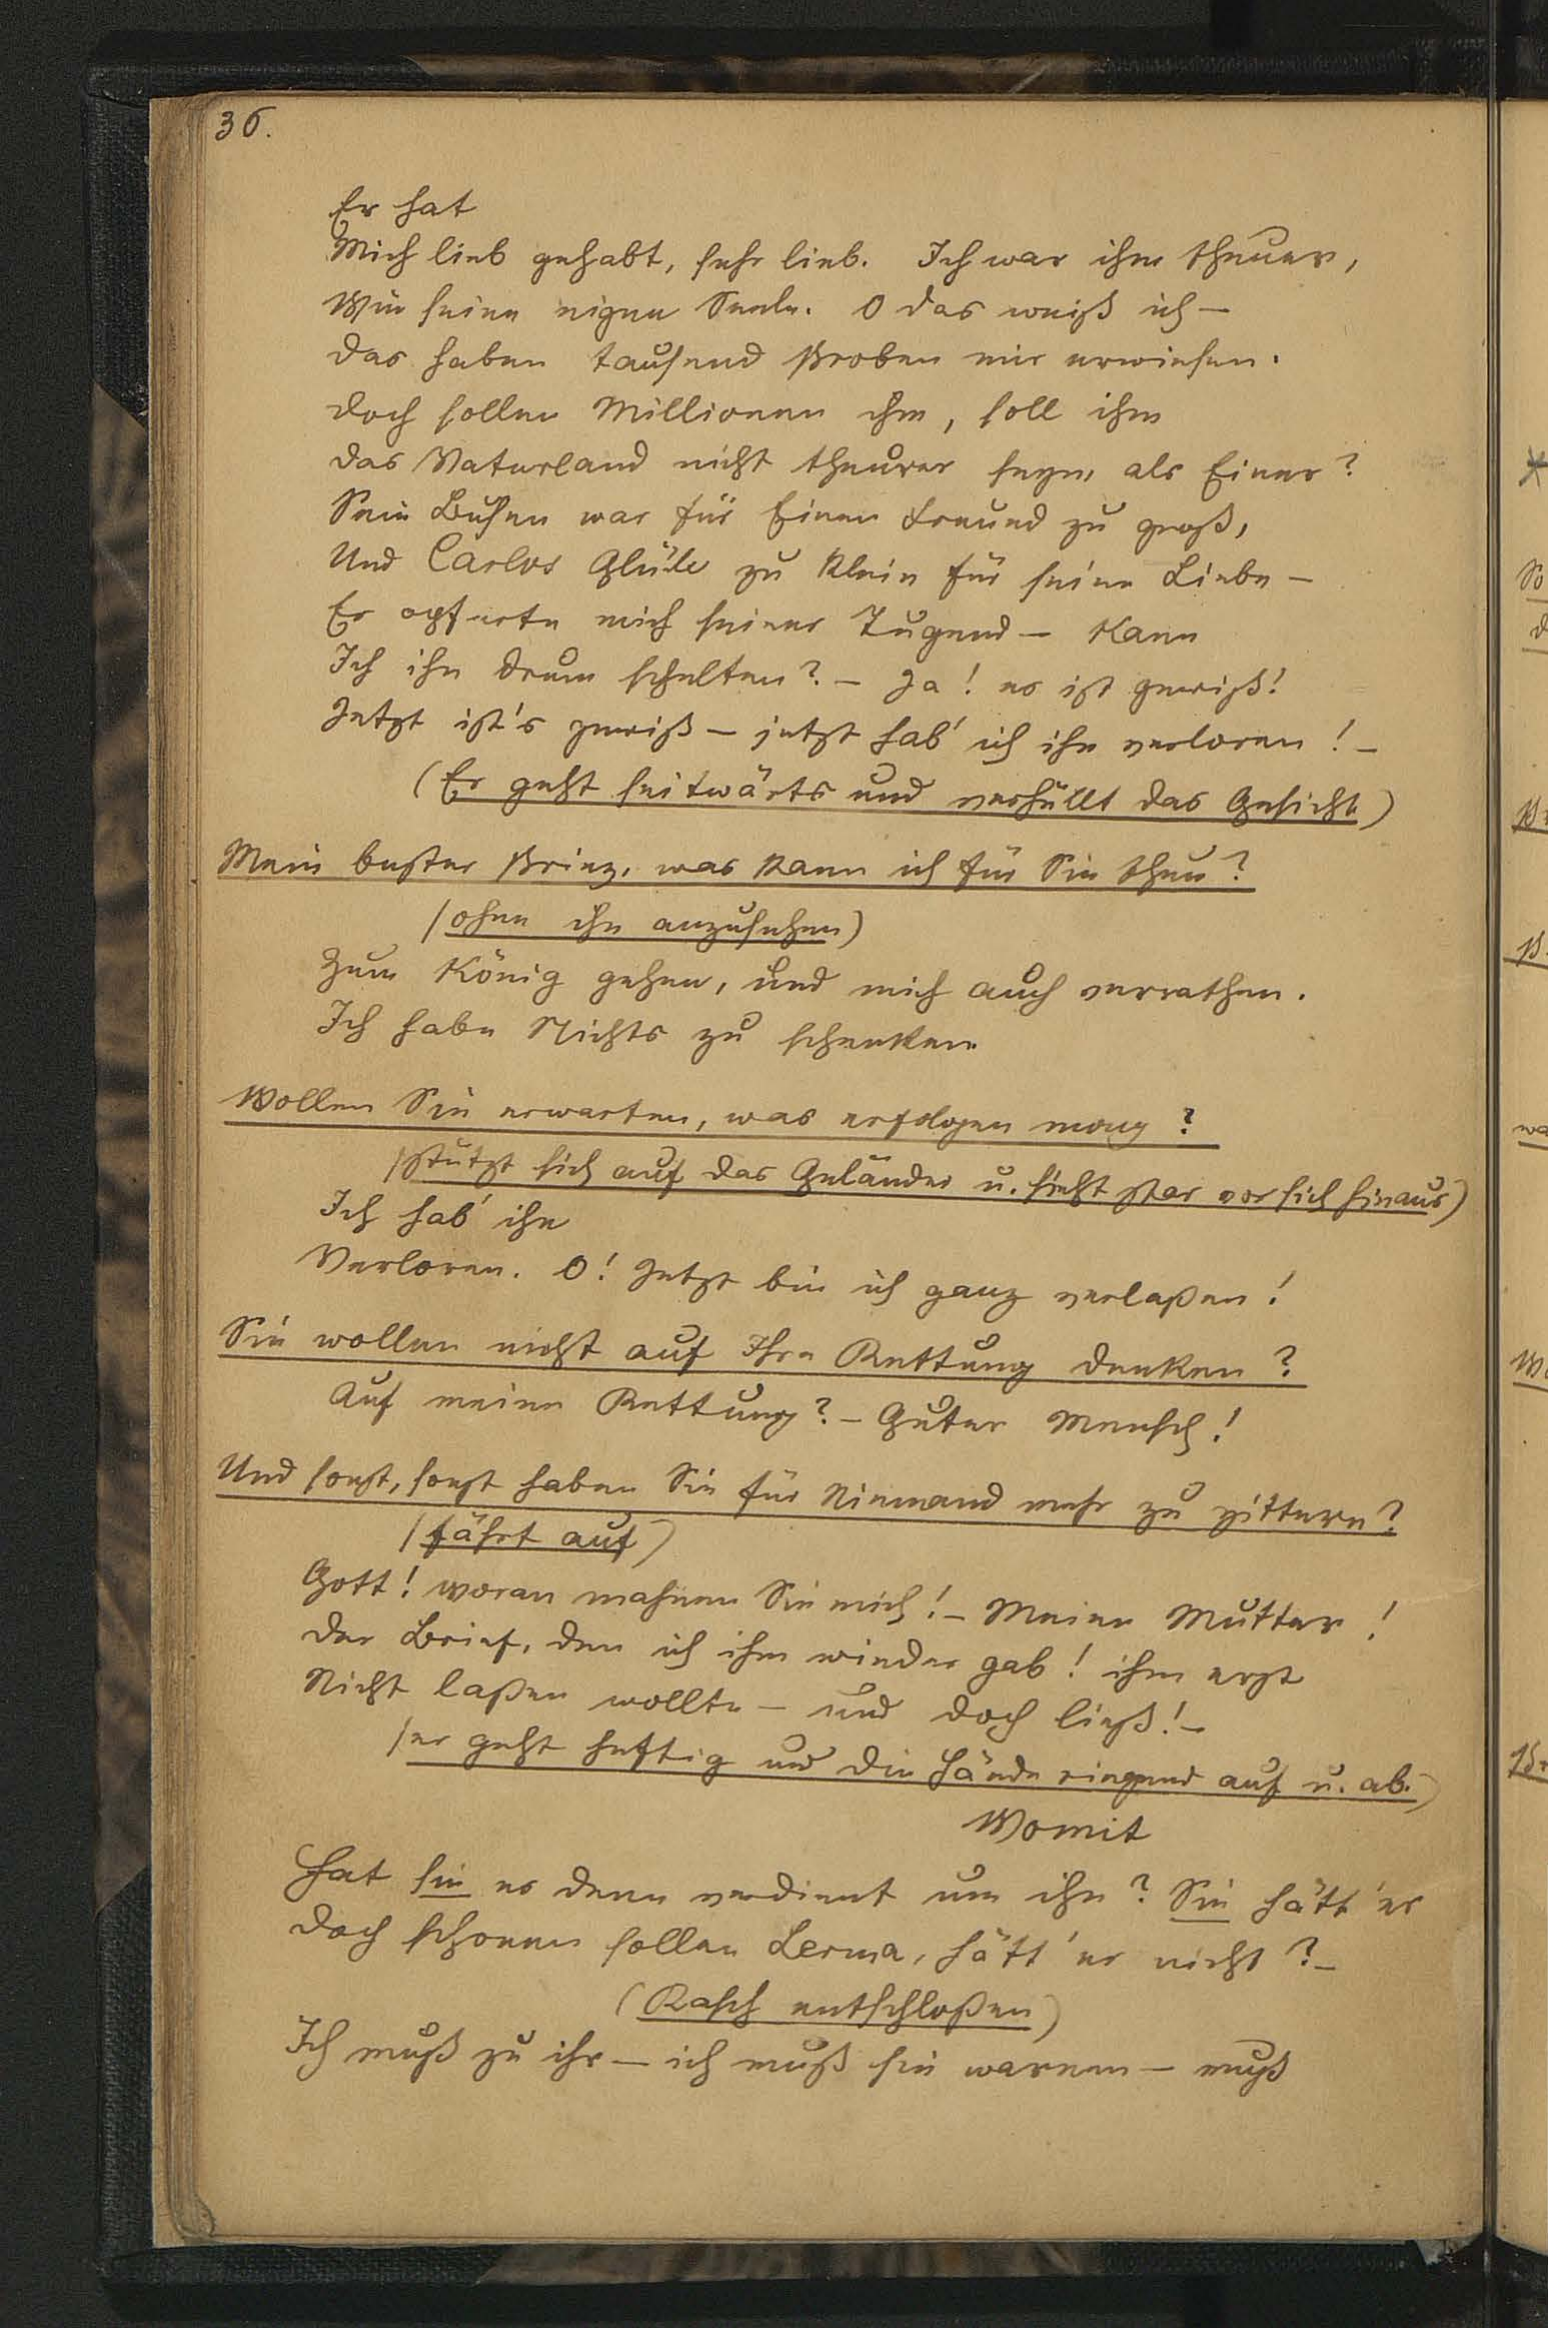 36.
Er hat
Mich lieb gehabt, sehr lieb. Ich war ihm theuer,
Wie seine eigne Seele. O das weiß ich —
das haben tausend Proben mir erwiesen.
doch sollen Millionen ihm, soll ihm
das Vaterland nicht theurer seyn, als Einer?
Sein Busen war für Einen Freund zu groß,
Und Carlos Glück zu klein für seine Liebe —
Er opferte mich seiner Tugend — Kann
Ich ihn drum schelten? — Ja! es ist gewiß!
Jetzt ist's gewiß — jetzt hab' ich ihn verloren! —
(Er geht seitwärts und verhüllt das Gesicht)
Mein bester Prinz, was kann ich für Sie thun?
(ohne ihn anzusehen)
Zum König gehen, und mich auch verrathen.
Ich habe Nichts zu schenken
Wollen Sie erwarten, was erfolgen mag?
(stützt sich auf das Geländer u. sieht star vor sich hinaus)
Ich hab' ihn
Verloren. O! Jetzt bin ich ganz verlaßen!
Sie wollen nicht auf Ihre Rettung denken?
Auf meine Rettung? — Guter Mensch!
Und sonst, sonst haben Sie für Niemand mehr zu zittern?
(fährt auf)
Gott! woran mahnen Sie mich! — Meine Mutter!
der Brief, den ich ihm wieder gab! ihm erst
Nicht laßen wollte — und doch ließ! —
(er geht heftig und die Hände ringend auf u. ab.)
Womit
Hat sie es denn verdient um ihn? Sie hätt' er
doch schonen sollen Lerma, hätt' er nicht? —
(Rasch entschloßen)
Ich muß zu ihr — ich muß sie warnen — muß
So
wa